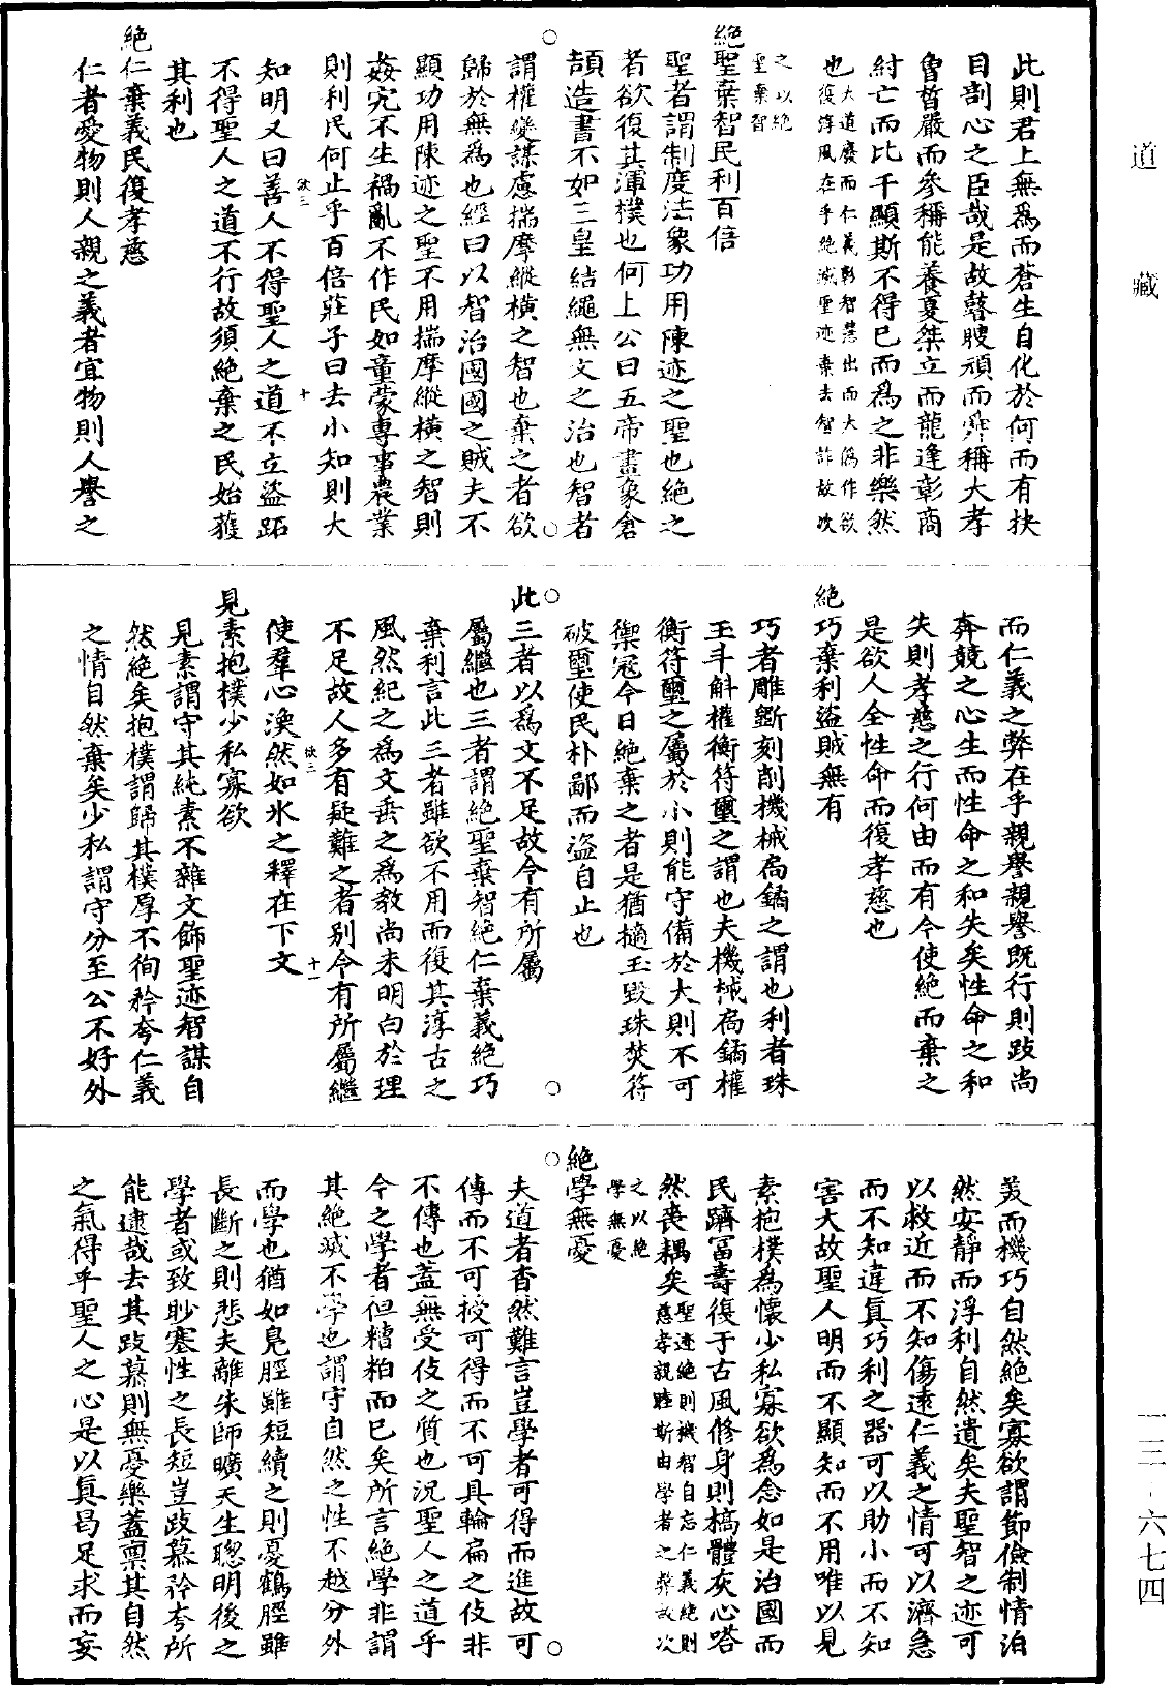 道藏
此則君上無爲而蒼生自化於何而有抉
目剖心之臣哉是故瞽瞍頑而舜稱大孝
曾晳嚴而參稱能養夏桀立而龍逢彰商
紂亡而比干顯斯不得已而爲之非樂然
也大道廢而仁義彰智慧出而大僞作欲
復淳風在乎絶滅聖迹棄去智詐故次
之以絶
聖棄智
絶聖棄智民利百倍
聖者謂制度法象功用陳迹之聖也絶之
者欲復其渾樸也何上公曰五帝畫象倉
頡造書不如三皇結繩無文之治也智者
謂權變謀慮揣摩縱橫之智也棄之者欲
歸於無爲也經曰以智治國國之賊夫不
顯功用陳迹之聖不用揣摩縱橫之智則
姦宄不生禍亂不作民如童蒙專事農業
則利民何止乎百倍莊子曰去小知則大
欲三
十
知明又曰善人不得聖人之道不立盜跖
不得聖人之道不行故須絶棄之民始獲
其利也
絶仁棄義民復孝慈
仁者愛物則人親之義者宜物則人譽之
而仁義之弊在乎親譽親譽既行則跂尚
奔競之心生而性命之和失矣性命之和
失則孝慈之行何由而有今使絶而棄之
是欲人全性命而復孝慈也
絶巧棄利盜賊無有
巧者雕斵刻削機械扃鐍之謂也利者珠
玉斗斛權衡符璽之謂也夫機械扃鐍權
衡符璽之屬於小則能守備於大則不可
禦寇今日絶棄之者是猶擿玉毀珠焚符
破璽使民朴鄙而盜自止也
此三者以爲文不足故令有所屬
屬繼也三者謂絶聖棄智絶仁棄義絶巧
棄利言此三者雖欲不用而復其淳古之
風然紀之爲文垂之爲敎尚未明白於理
不足故人多有疑難之者别令有所屬繼
欲三
十一
使羣心渙然如氷之釋在下文
見素抱樸少私寡欲
見素謂守其純素不雜文飾聖迹智謀自
然絶矣抱樸謂歸其樸厚不徇矜夸仁義
之情自然棄矣少私謂守分至公不好外
美而機巧自然絶矣寡欲謂節儉制情泊
然安靜而浮利自然遺矣夫聖智之迹可
以救近而不知傷遠仁義之情可以濟急
而不知違眞巧利之器可以助小而不知
害大故聖人明而不顯知而不用唯以見
素抱樸爲懷少私寡欲爲念如是治國而
民躋冨壽復于古風修身則槁體灰心嗒
然喪耦矣聖迹絶則機智自忘仁義絶則
慈孝親睦斯由學者之弊故次
之以絶
學無憂
絶學無憂
夫道者杳然難言豈學者可得而進故可
傳而不可授可得而不可具輪扁之伎非
不傳也蓋無受伎之質也況聖人之道乎
今之學者但糟粕而已矣所言絶學非謂
其絶滅不學也謂守自然之性不越分外
而學也猶如鳧脛雖短續之則憂鶴脛雖
長斷之則悲夫離朱師曠天生聰明後之
學者或致眇塞性之長短豈跂慕矜夸所
能逮哉去其跂慕則無憂樂蓋禀其自然
之氣得乎聖人之心是以眞曷足求而妄
一三-六七四